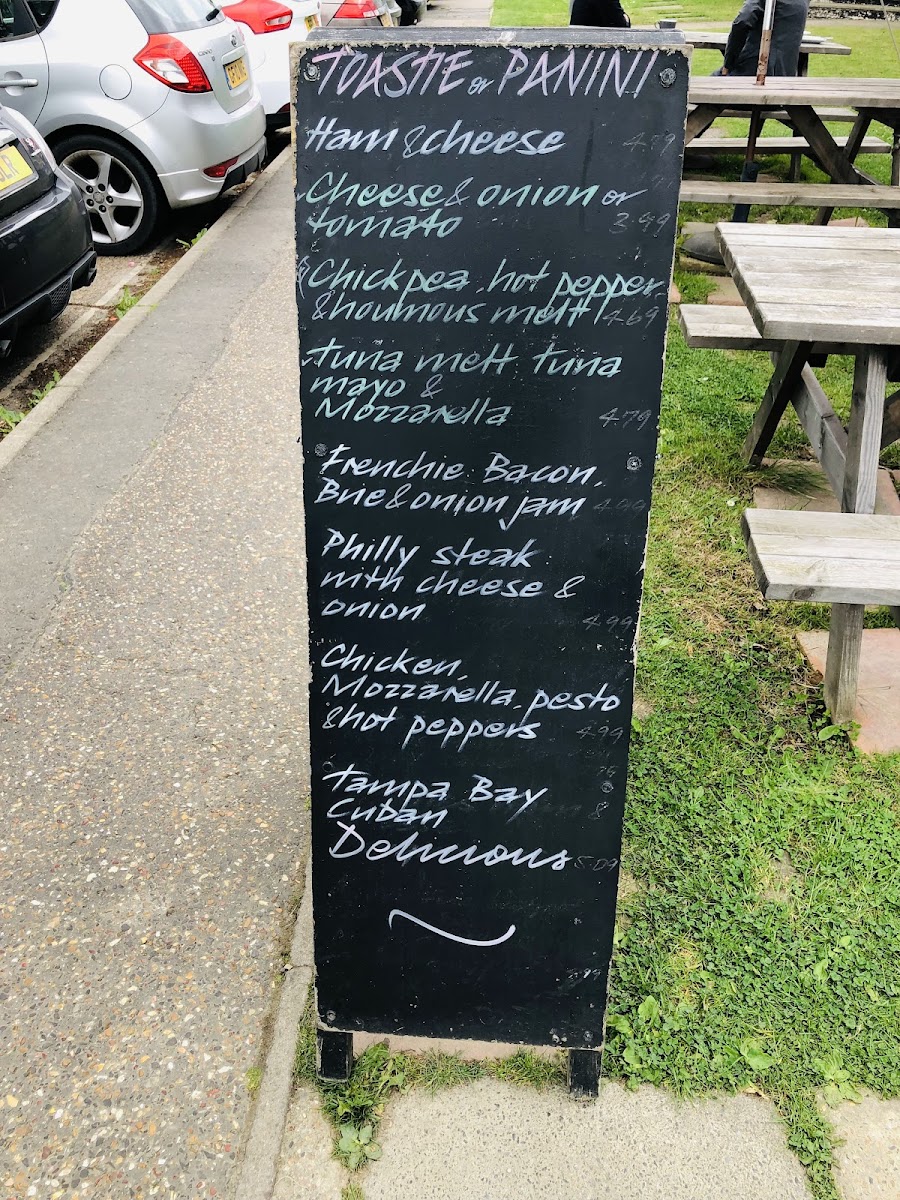 TOASTIE or PANINI
Ham & cheese 4.79
Cheese & onion or
tomato 3.99
Chickpea, hot pepper
& houmous melt 4.69
tuna melt tuna
mayo &
Mozzarella 4.79
Frenchie Bacon,
Brie & onion jam 4.99
Philly steak
with cheese &
onion 4.99
Chicken,
Mozzarella, pesto
& hot peppers 4.99
Tampa Bay
Cuban
Delicious 5.09